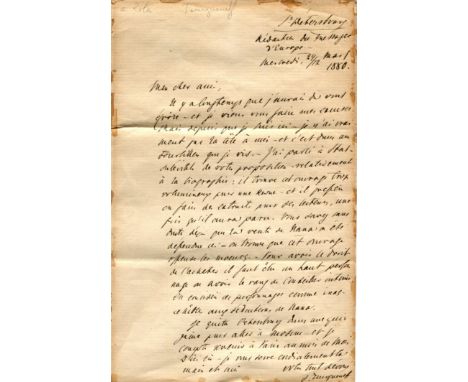 à Zola Tourgueneff
St Petersbourg
Rédaction du Messager
d'Europe
Mercredi, 12 Mars
1880.
Mon cher ami,
Il y a longtemps que j'aurais dû vous
écrire – et je viens vous faire mes excuses
Mais depuis que je suis ici – je n'ai vrai
ment pas la tête à moi – et c'est dans un
tourbillon que je vis. – J'ai parlé à Stas-
sulevitch de votre proposition relativement
à la biographie: il trouve cet ouvrage trop
volumineux pour une revue – et il préfère
en faire des extraits pour ses lecteurs, une
fois qu'il aura paru. Vous savez sans
doute déjà que la vente de Nana a été
défendue ici – on trouve que cet ouvrage
offense les moeurs. – Pour avoir le droit
de l'acheter il faut être un haut person
nage ou avoir le rang de Conseiller
de personnages comme
séducteur de Nana.
Je quitte Petersbourg dans une quin
zaine pour aller à Moscou – et je
compte à Paris au mois de Mai
ici – je vous serre cordialement la
main et suis votre tout dévoué
Tourgueneff